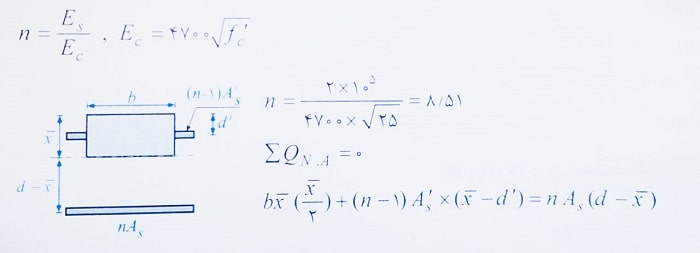 n = E_s / E_c , E_c = ۴۷۰۰√f'_c
b
(n-۱)A'_s
d'
x̄
d - x̄
nA_s
n = ۲×۱۰^۵ / ۴۷۰۰×√۲۵ = ۸/۵۱
ΣQ_{N.A} = ۰
bx̄(x̄/۲)+(n-۱)A'_s×(x̄-d')=nA_s(d-x̄)